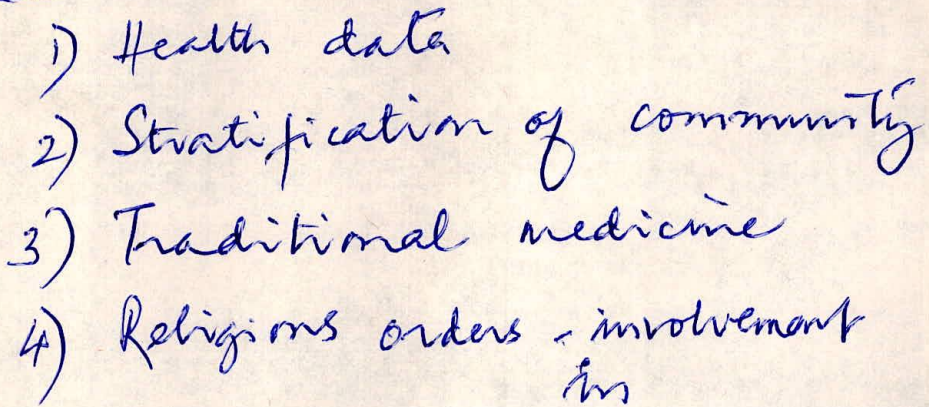 1) Health data
2) Stratification of community
3) Traditional medicine
4) Religious orders - involvement
in